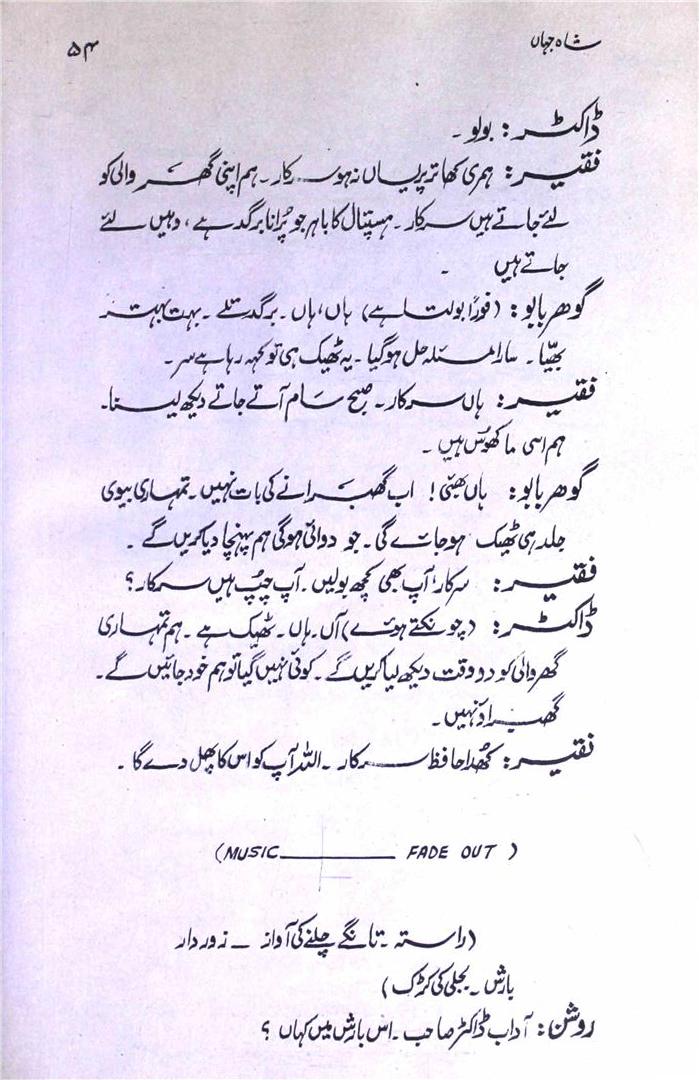 شاہ جہاں
۵۴
ڈاکٹر: بولو ۔
فقیر: ہمری کھاتر پریساں نہ ہو سرکار ۔ ہم اپنی گھر والی کو
لئے جاتے ہیں سرکار ۔ ہسپتال کا باہر جو پُرانا برگد ہے ، وہیں لئے
جاتے ہیں ۔
گوھر بابو: (فوراً بولتا ہے) ہاں، ہاں ۔ برگد تلے ۔ بہت بہتر
بھیّا ۔ سارا مسئلہ حل ہو گیا ۔ یہ ٹھیک ہی تو کہہ رہا ہے سر ۔
فقیر: ہاں سرکار ۔ صبح سام آتے جاتے دیکھ لینا ۔
ہم اسی ما کھوس ہیں ۔
گوھر بابو: ہاں بھئی ! اب گھبرانے کی بات نہیں ۔ تمہاری بیوی
جلد ہی ٹھیک ہو جائے گی ۔ جو دوائی ہوگی ہم پہنچا دیا کریں گے ۔
فقیر: سرکار، آپ بھی کچھ بولیں ۔ آپ چُپ ہیں سرکار ؟
ڈاکٹر: (چونکتے ہوئے) آں ۔ ہاں ۔ ٹھیک ہے ۔ ہم تمہاری
گھر والی کو دو وقت دیکھ لیا کریں گے ۔ کوئی نہیں گیا تو ہم خود جائیں گے ۔
گھبراؤ نہیں ۔
فقیر: کھُدا حافظ سرکار ۔ اللہ آپ کو اس کا پھل دے گا ۔
(MUSIC ______ FADE OUT )
(راستہ ۔ تانگے چلنے کی آواز ــ زوردار
بارش ۔ بجلی کی کڑک)
روشن: آداب ڈاکٹر صاحب ۔ اس بارش میں کہاں ؟